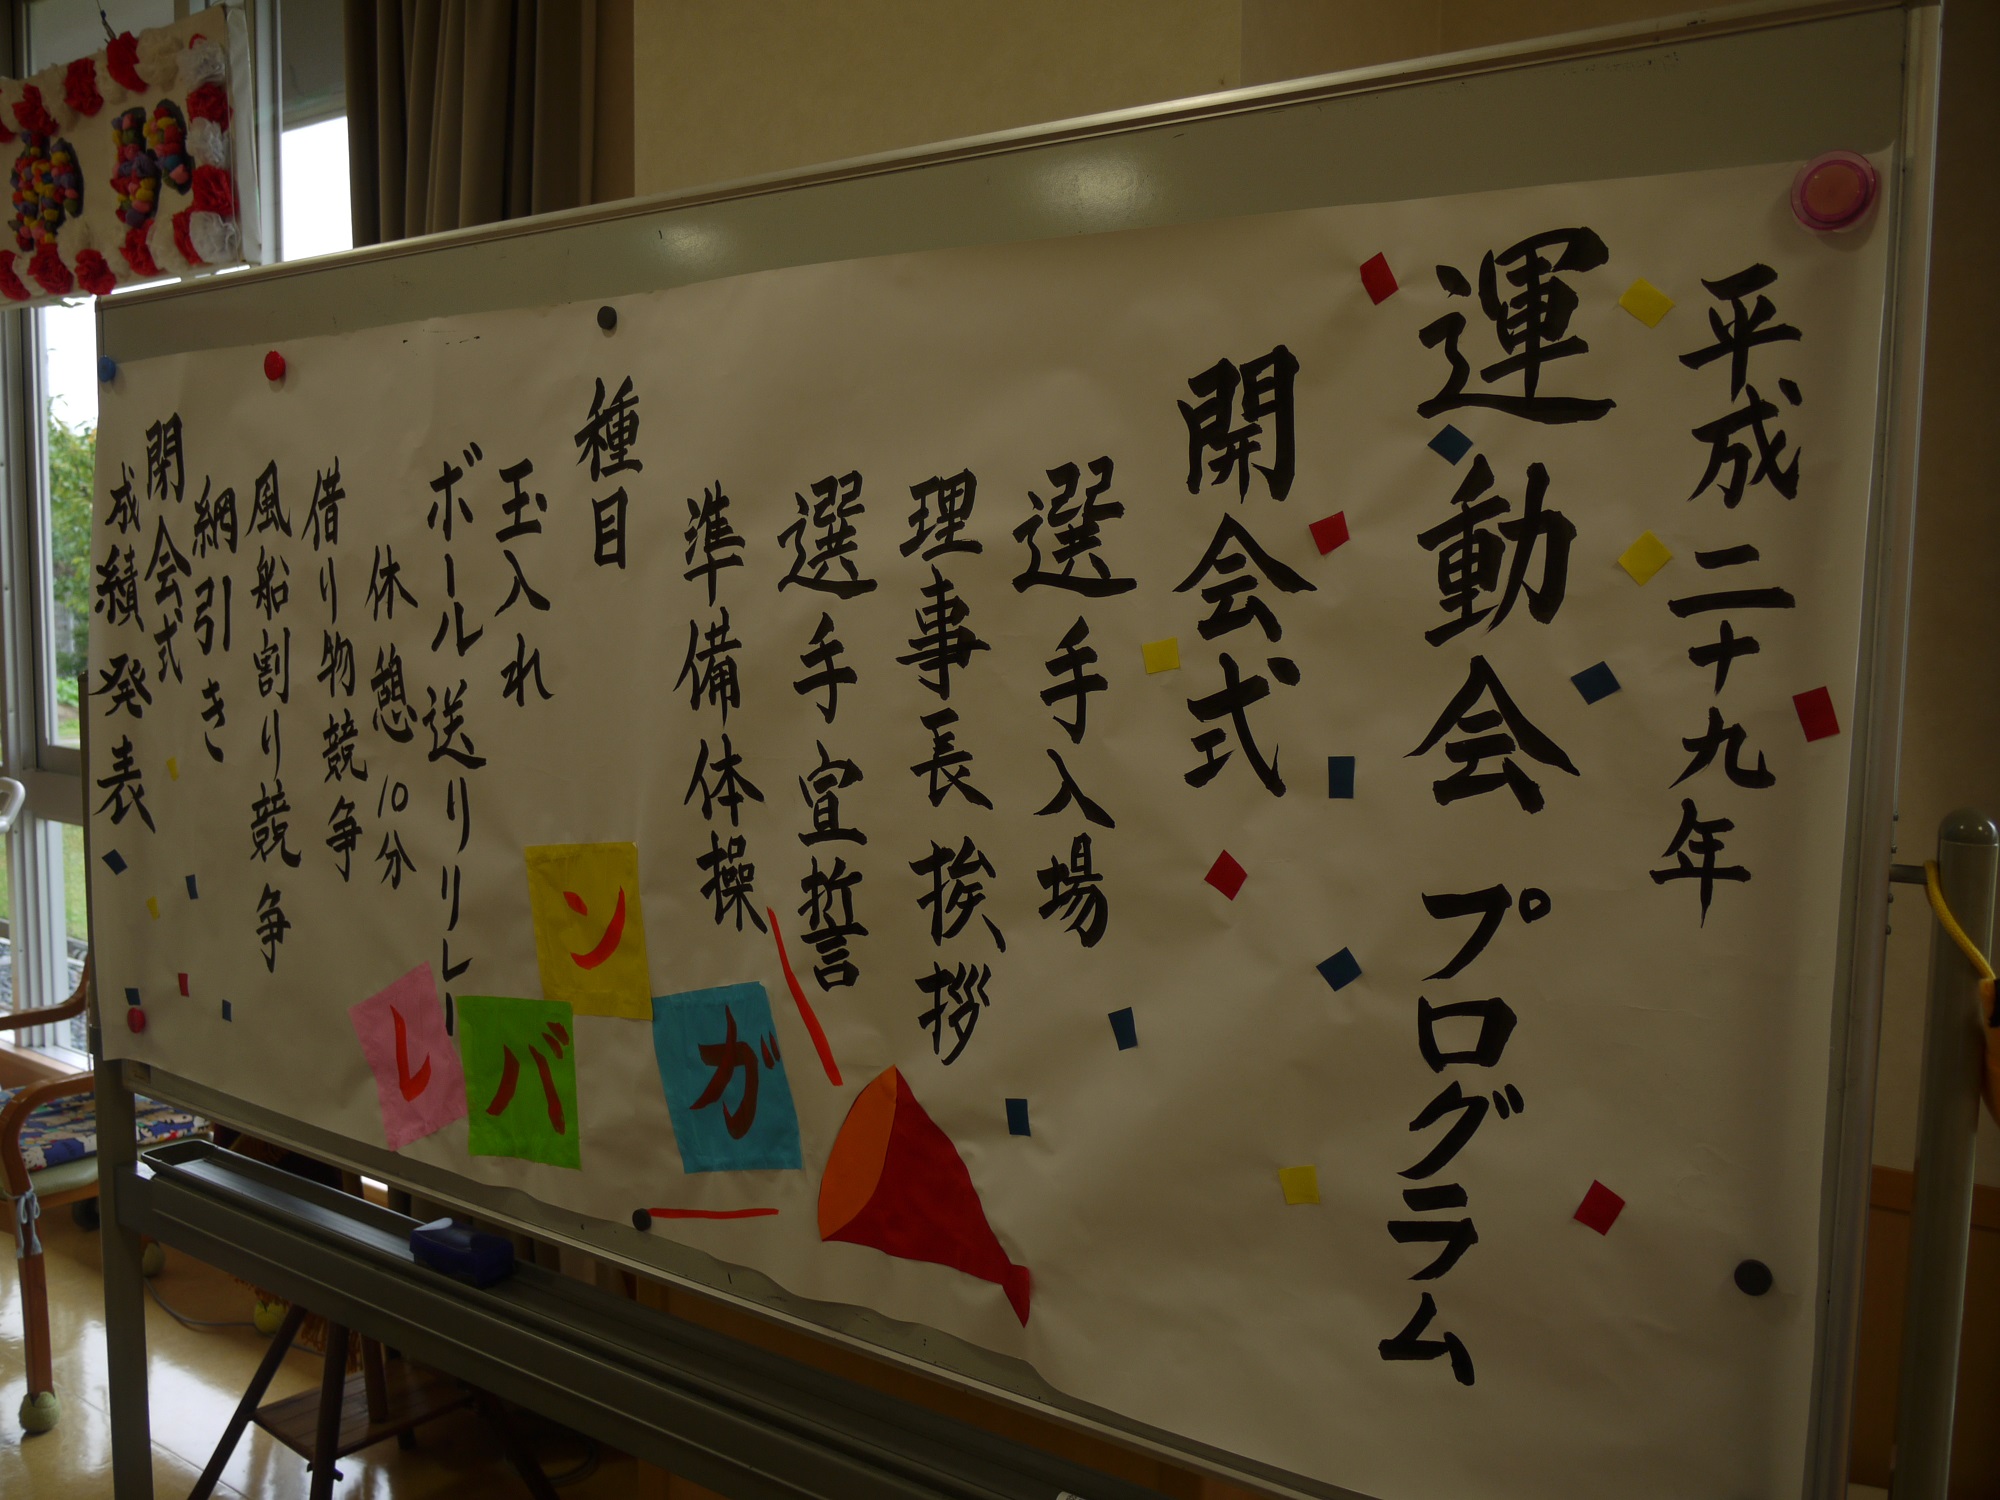 平成二十九年
運動会 プログラム
開会式
選手入場
理事長挨拶
選手宣誓
準備体操
種目
玉入れ
ボール送りリレー
休憩 10分
借り物競争
風船割り競争
綱引き
閉会式
成績発表
ガンバレ